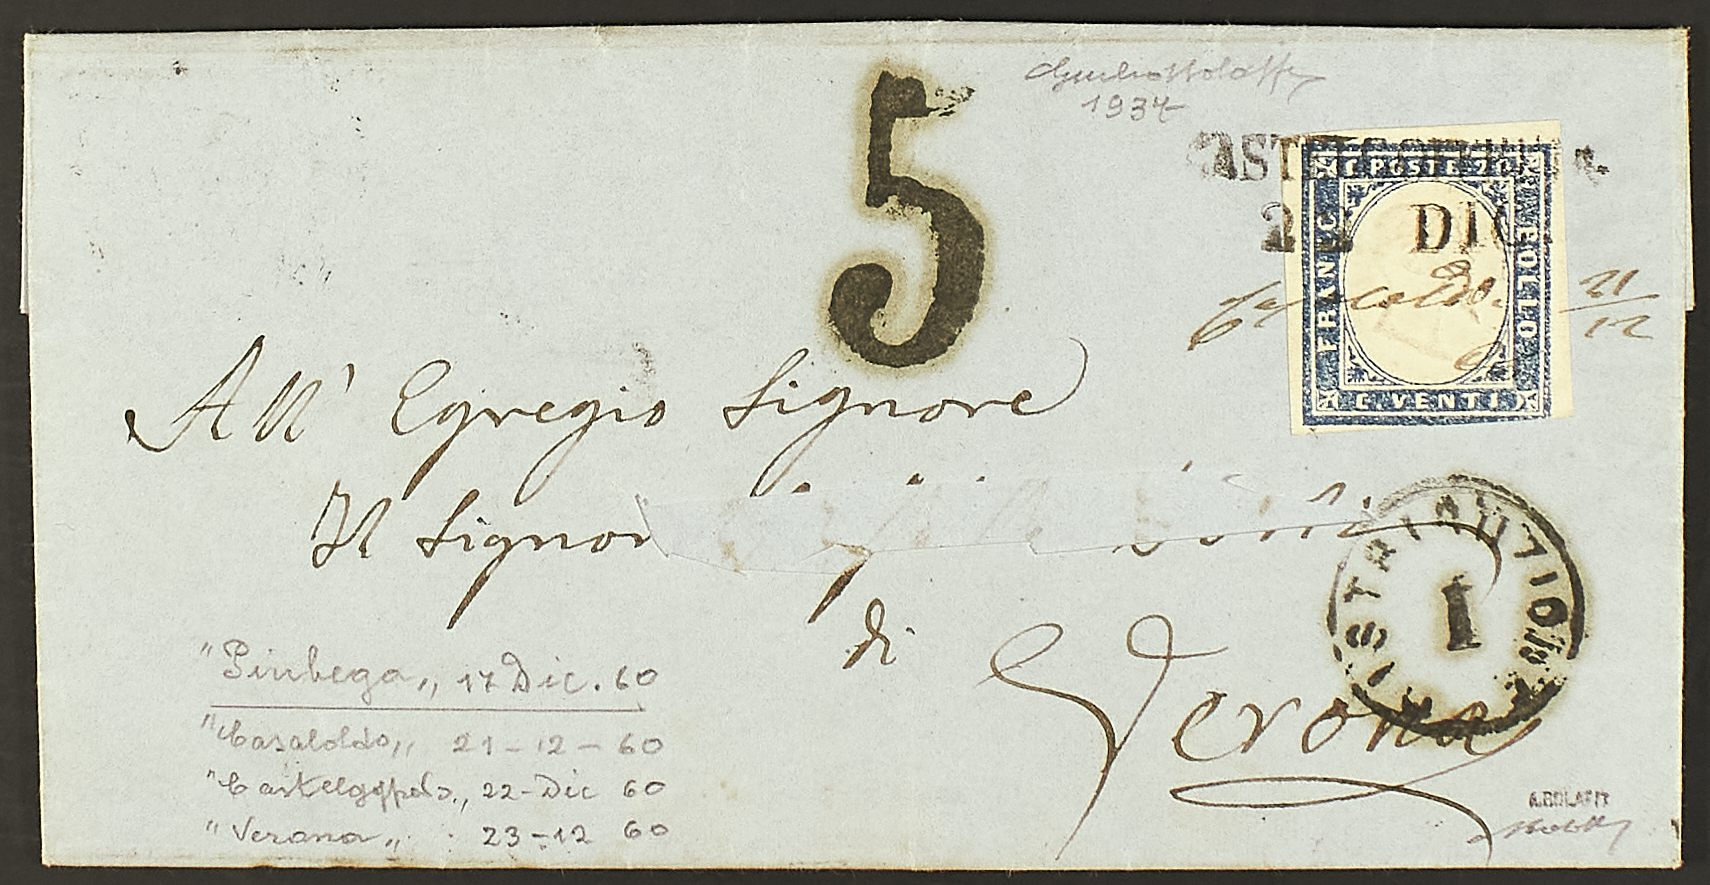 5
1937
22 DIC
C. POSTE 20
FRANCO
BOLLO
C. VENTI
Casaloldo 21/12
All' Egregio Signore
Il Signor
di
Verona
DISTRIBUZIONE
I
"Piubega„ 17 Dic. 60
"Casaloldo„ 21-12-60
"Castelgoffredo„ 22-Dic 60
"Verona„ 23-12 60
A. BOLAFFI